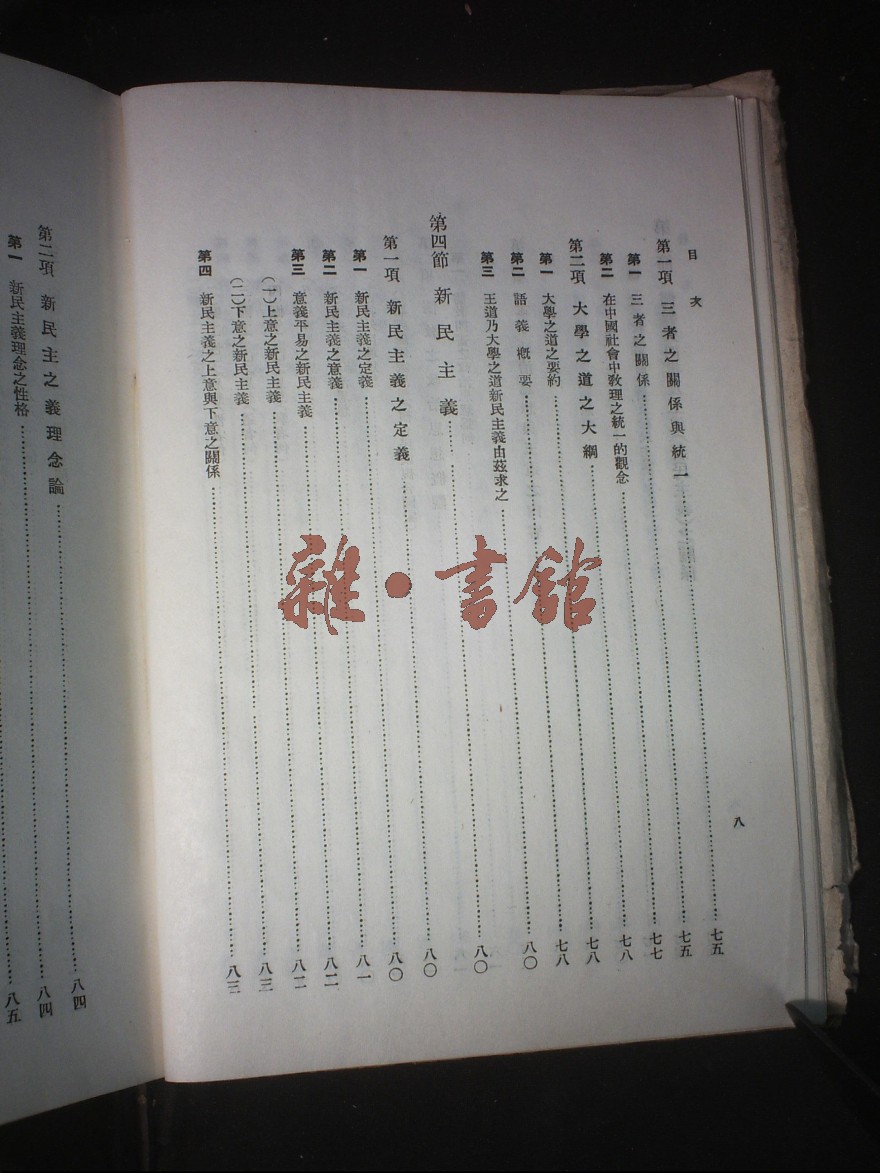 目次
八
第一項 三者之關係與統一……七五
第一 三者之關係……七五
第二 在中國社會中教理之統一的觀念……七七
第二項 大學之道之大綱……七八
第一 大學之道之要約……七八
第二 語義概要……七八
第三 王道乃大學之道新民主義由茲求之……八〇
第四節 新民主義……八〇
第一項 新民主義之定義……八〇
第一 新民主義之定義……八〇
第二 新民主義之意義……八一
第三 意義平易之新民主義……八二
(一)上意之新民主義……八二
(二)下意之新民主義……八三
第四 新民主義之上意與下意之關係……八三
第二項 新民主之義理念論……八四
第一 新民主義理念之性格……八四
八五
雜·書館